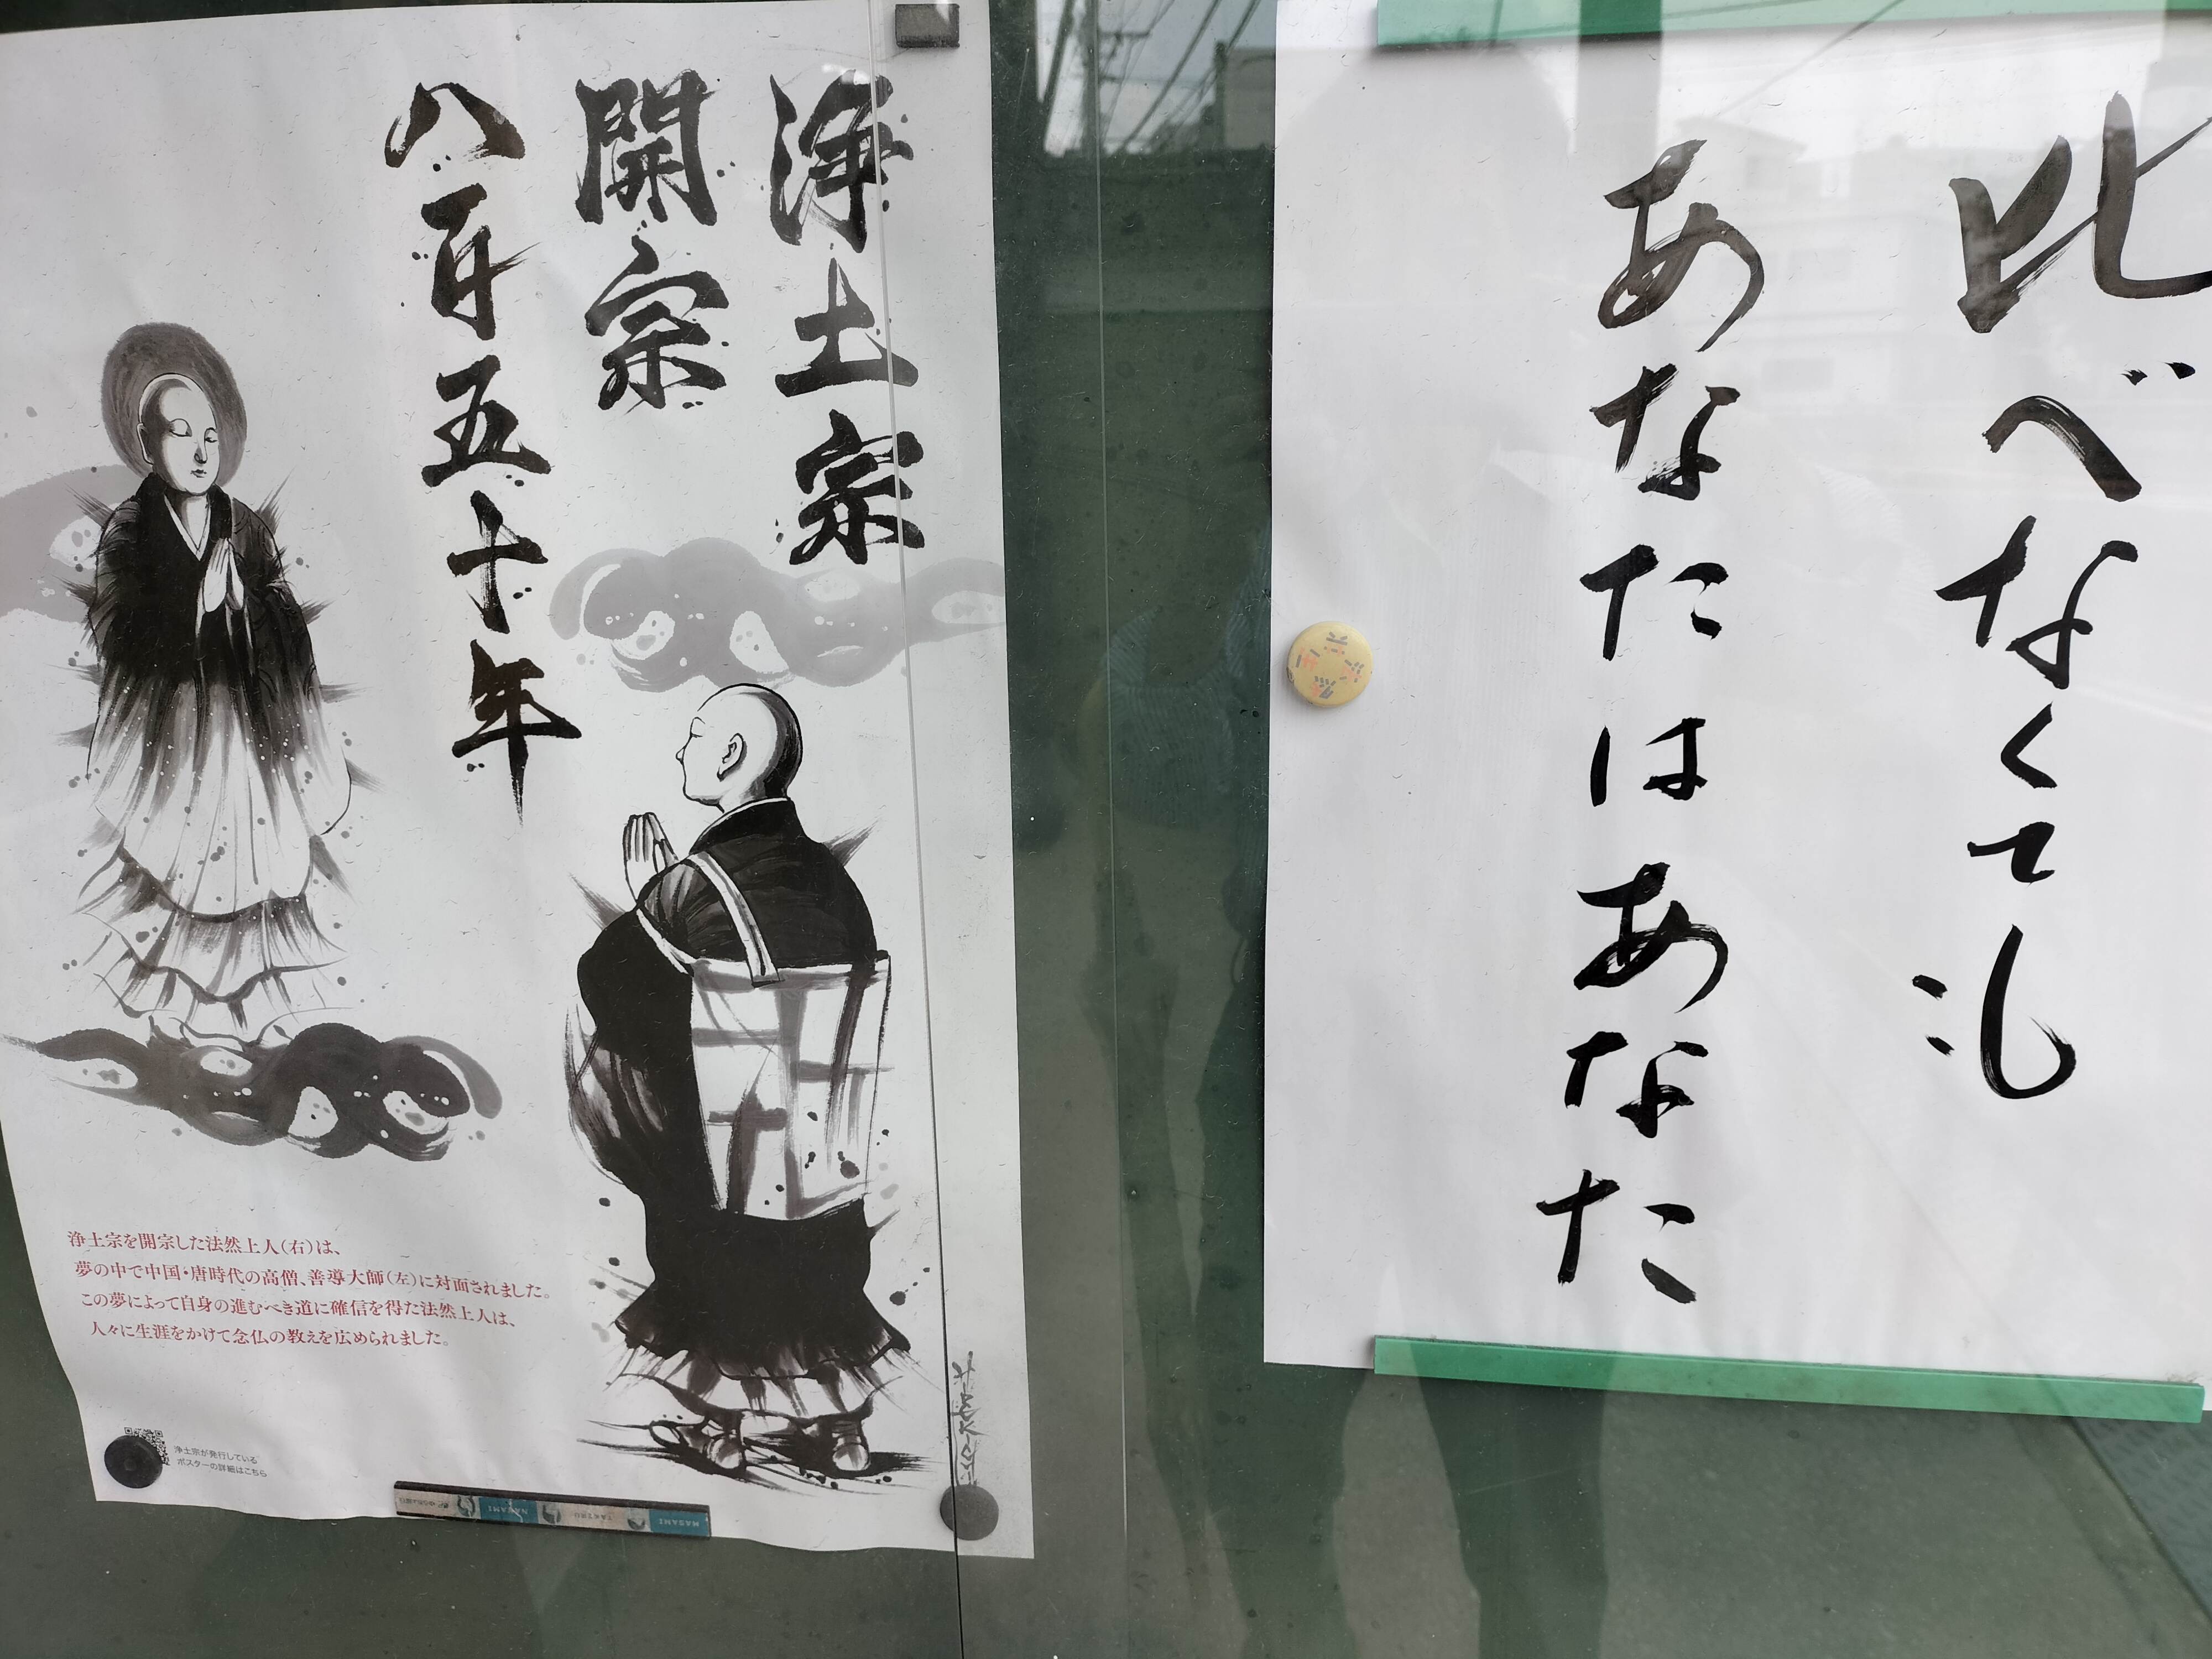 比べなくても
あなたはあなた
浄土宗
開宗
八百五十年
浄土宗を開宗した法然上人(右)は、
夢の中で中国・唐時代の高僧、善導大師(左)に対面されました。
この夢によって自身の進むべき道に確信を得た法然上人は、
人々に生涯をかけて念仏の教えを広められました。
浄土宗が発行している
ポスターの詳細はこちら
NAGAMI
TAKERU
MASAMI